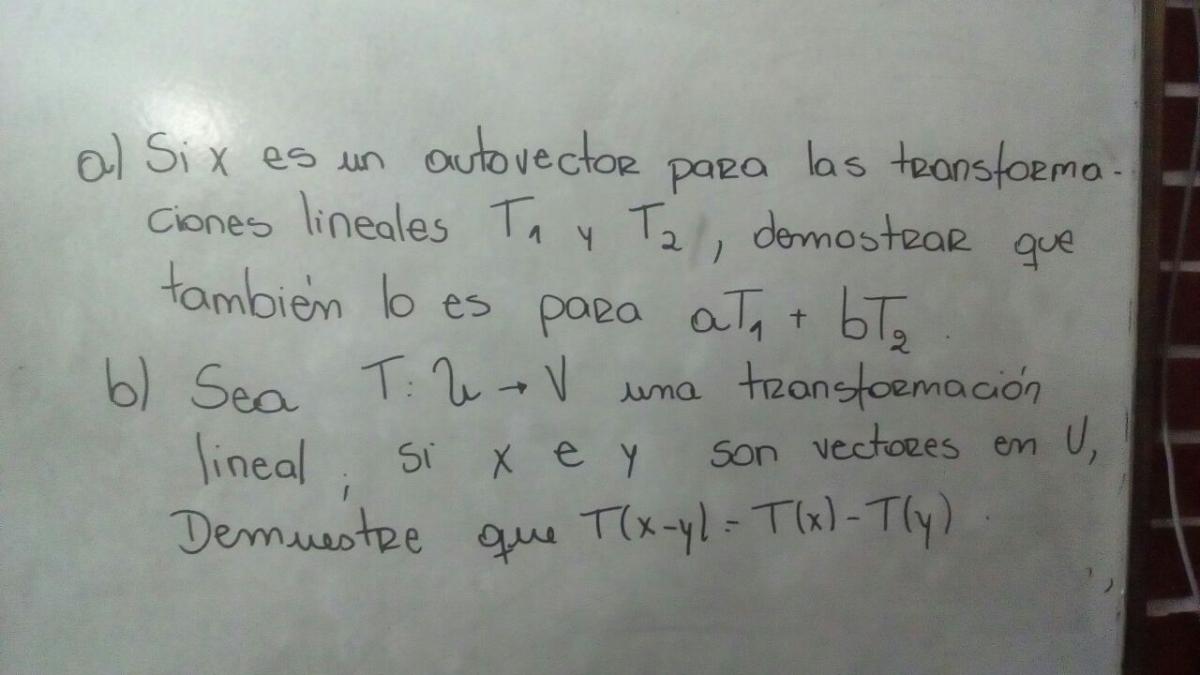 a) Si x es un autovector para las transforma-
ciones lineales T₁ y T₂, demostrar que
también lo es para aT₁ + bT₂.
b) Sea T: U → V una transformación
lineal; si x e y son vectores en U,
Demuestre que T(x-y) = T(x) - T(y).